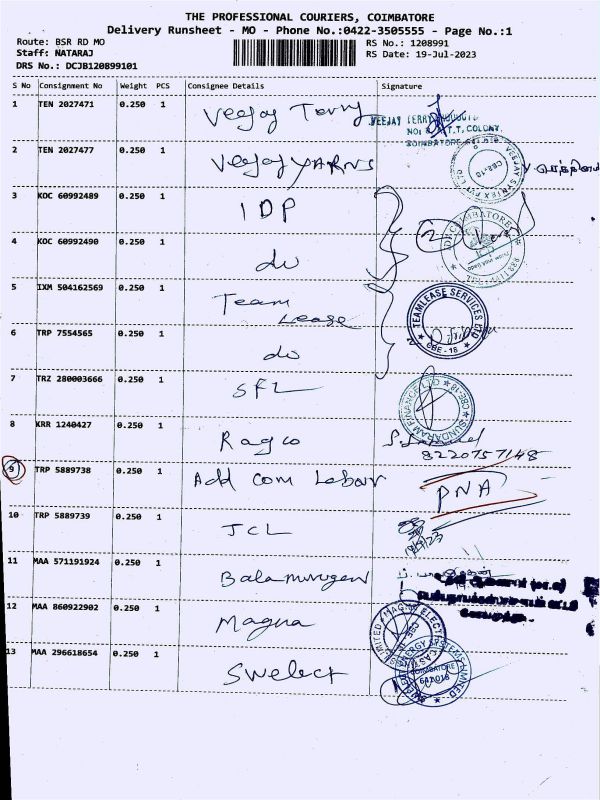 THE PROFESSIONAL COURIERS, COIMBATORE
Delivery Runsheet - MO - Phone No.:0422-3505555 - Page No.:1
Route: BSR RD MO
RS No.: 1208991
Staff: NATARAJ
RS Date: 19-Jul-2023
DRS No.: DCJB120899101
S No Consignment No Weight PCS Consignee Details Signature
1 TEN 2027471 0.250 1 Veejay Terry VEEJAY TERRY
T.T. COLONY,
2 TEN 2027477 0.250 1 Veejay YARNS VEEJAY SYNTEX PVT LTD CBE-18
3 KOC 60992489 0.250 1 IDP
4 KOC 60992490 0.250 1 do 2 COIMBATORE
5 IXM 504162569 0.250 1 Team
Lease TEAMLEASE SERVICES LTD CBE - 18
6 TRP 7554565 0.250 1 do
7 TRZ 280003666 0.250 1 SFL SUNDARAM FINANCE LTD CBE-18
8 KRR 1240427 0.250 1 Ragco
8220757148
9 TRP 5889738 0.250 1 Add Com Labour PNA
10 TRP 5889739 0.250 1 JCL
11 MAA 571191924 0.250 1 Balamurugan
12 MAA 860922902 0.250 1 Magna
13 MAA 296618654 0.250 1 Swelect COIMBATORE
641018